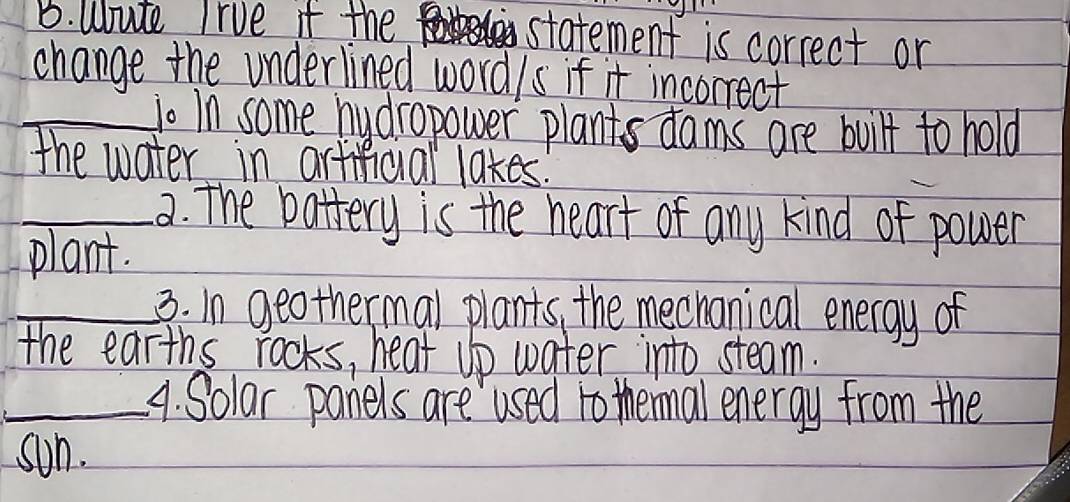 B. Write True if the statement is correct or
change the underlined word/s if it incorrect
1. In some hydropower plants dams are built to hold
the water in artificial lakes.
2. The battery is the heart of any kind of power
plant.
3. In geothermal plants, the mechanical energy of
the earths rocks, heat up water into steam.
4. Solar panels are used to thermal energy from the
sun.